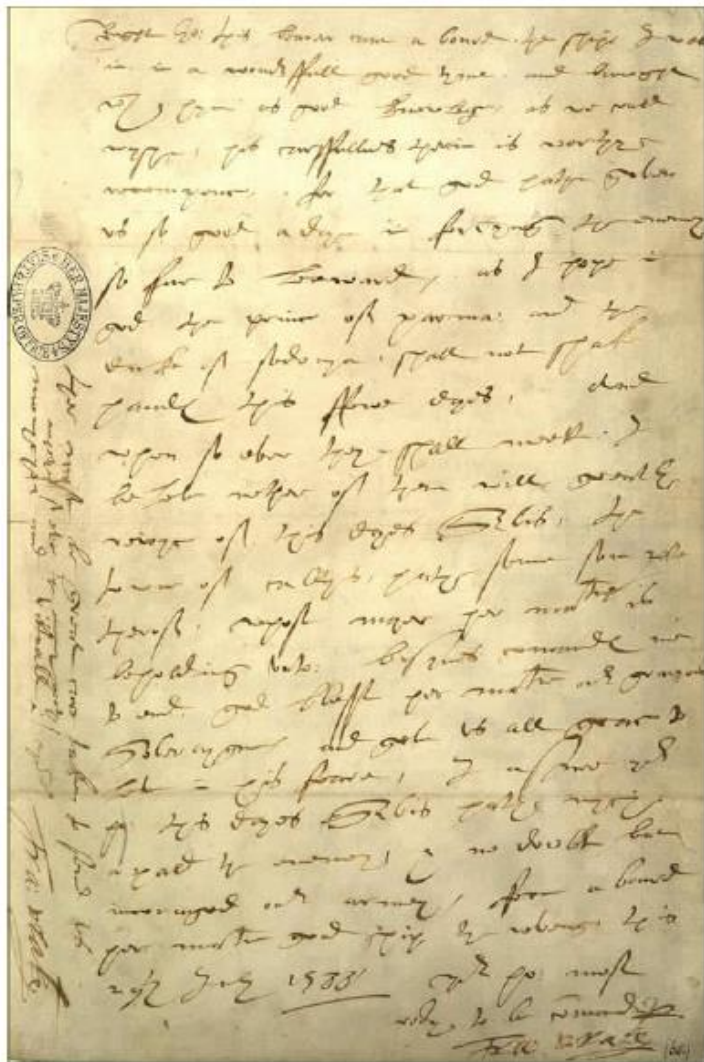 Right ho: this bearar cam a bourd the ship I was
in in a wonderffull good tyme. and brought
with hym as good knowlege as we could
wyshe, his carffullnes therin is worthye
recompence, for that god hathe geven
us so good a daye in forcyng the enemey
so far to leeward, as I hope in
god the prince of parma and the
duke of sedonya shall not shake
hands this ffewe dayes, And
when so ever they shall meett, I
beleve nether of them will greatly
reioyce of this dayes Servis, the
towne of callys hathe seene som
therof, whos mayer her majestie is
beholding unto: busynes comands me
to end. god bless her majestie our gracyous
Soveraygne and geve us all grace to
live in his feare, I assure your
ho: this dayes Servis hathe mych
apald the enemey, & no doubt but
incouraged our armey, ffrom a bourd
her majesties good ship the revenge this
29th July 1588
your ho: most
redy to be comanded
Fra: Drake
ther must be great care taken to send us
monycyon and vittuall
Fra: Drake